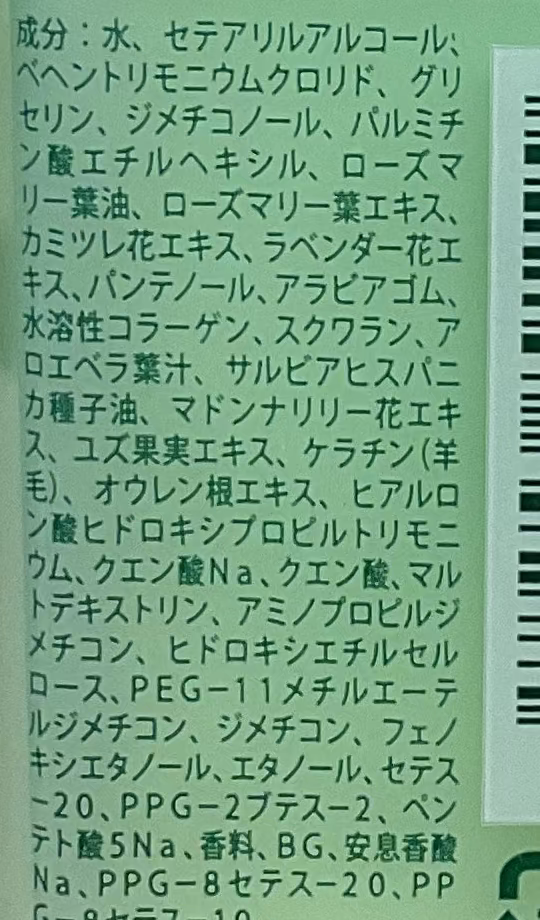 成分：水、セテアリルアルコール、
ベヘントリモニウムクロリド、グリ
セリン、ジメチコノール、パルミチ
ン酸エチルヘキシル、ローズマ
リー葉油、ローズマリー葉エキス、
カミツレ花エキス、ラベンダー花エ
キス、パンテノール、アラビアゴム、
水溶性コラーゲン、スクワラン、ア
ロエベラ葉汁、サルビアヒスパニ
カ種子油、マドンナリリー花エキ
ス、ユズ果実エキス、ケラチン(羊
毛)、オウレン根エキス、ヒアルロ
ン酸ヒドロキシプロピルトリモニ
ウム、クエン酸Na、クエン酸、マル
トデキストリン、アミノプロピルジ
メチコン、ヒドロキシエチルセル
ロース、PEG－11メチルエーテ
ルジメチコン、ジメチコン、フェノ
キシエタノール、エタノール、セテス
－20、PPG－2ブテス－2、ペン
テト酸5Na、香料、BG、安息香酸
Na、PPG－8セテス－20、PP
G－8セテス－10